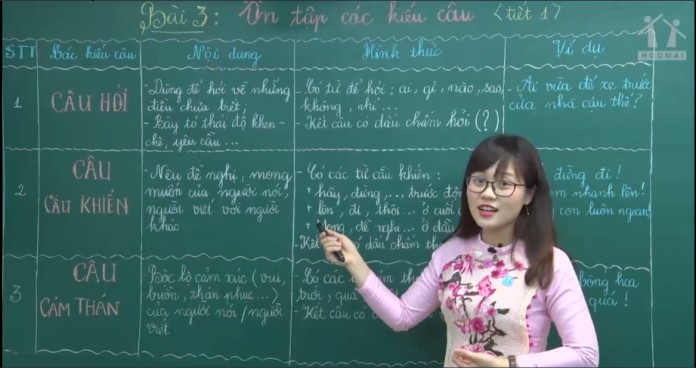 Bài 3: Ôn tập các kiểu câu <tiết 1>
HOCMAI
STT
Các kiểu câu
Nội dung
Hình thức
Ví dụ
1
CÂU HỎI
- Dùng để hỏi về những
điều chưa biết;
- Bày tỏ thái độ khen -
chê, yêu cầu ...
- Có từ để hỏi: ai, gì, nào, sao,
không, nhỉ ...
- Kết câu có dấu chấm hỏi (?)
- Ai vừa để xe trước
của nhà cậu thế?
2
CÂU
CẦU KHIẾN
- Nêu đề nghị, mong
muốn của người nói,
người viết với người
khác
- Có các từ cầu khiến:
+ hãy, đừng, ... trước độ
+ lên, đi, thôi ... ở cuối
+ đề nghị ... ở đầu
- Kết có dấu chấm th
đừng đi!
em nhanh lên!
con luôn ngoan
3
CÂU
CẢM THÁN
- Bộc lộ cảm xúc (vui,
buồn, thán phục ...)
của người nói/người
viết
- Có các th
trời, quá
- Kết câu có
bông hoa
quá!